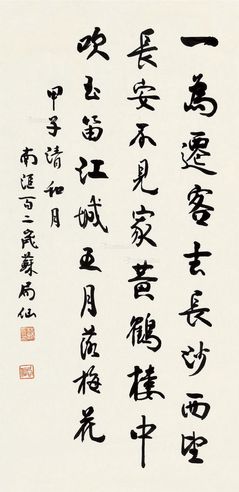 一為遷客去長沙西望
長安不見家黃鶴樓中
吹玉笛江城五月落梅花
甲子清和月
南匯百二歲蘇局仙